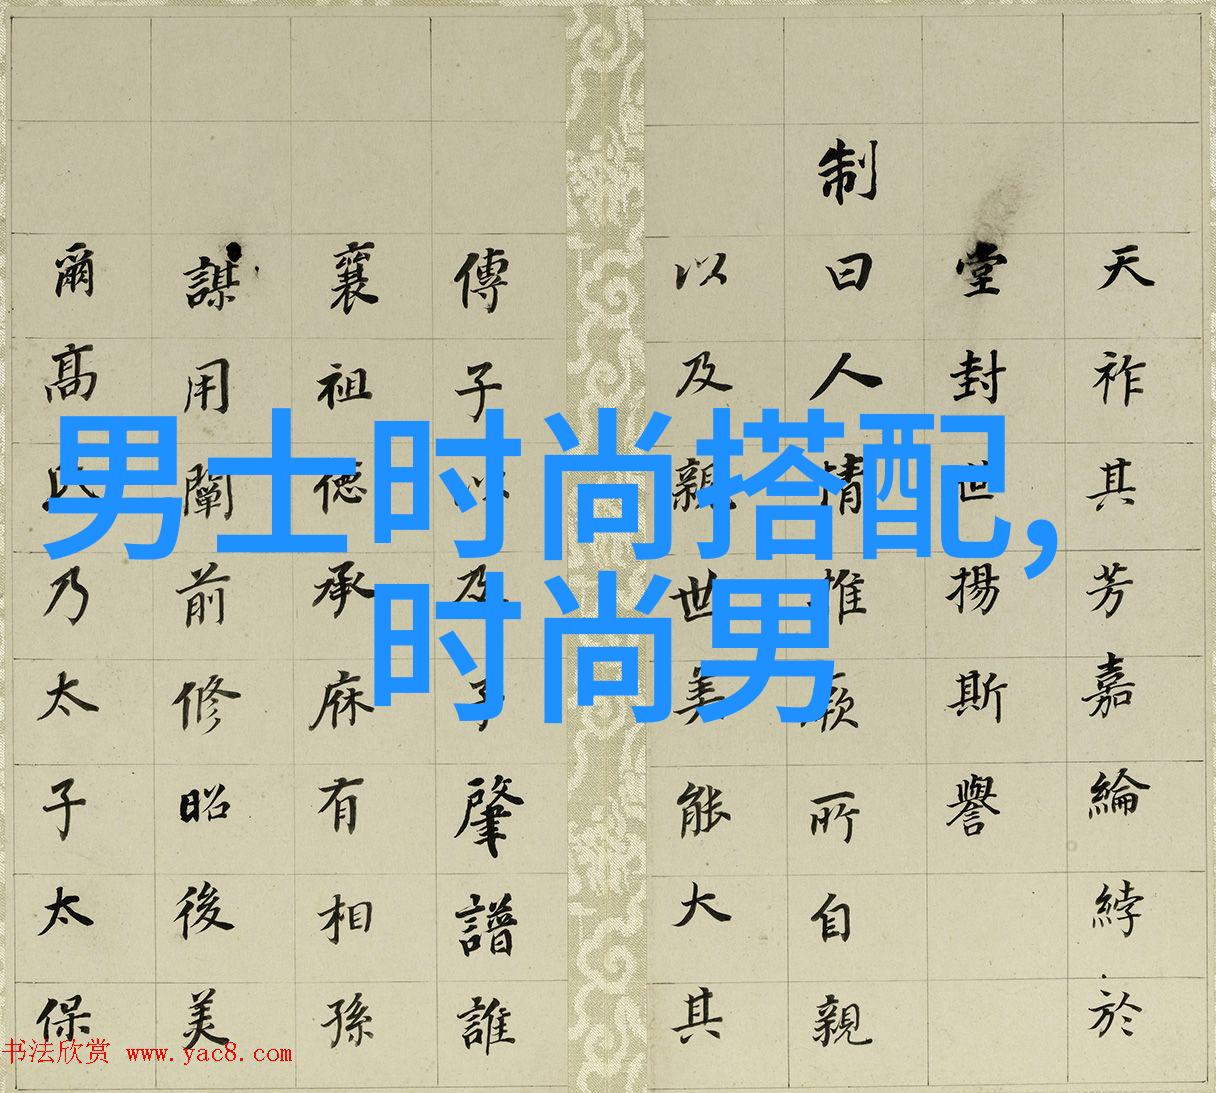 天祚其芳嘉綸綍於
堂封世揚斯譽
制曰人情推厥所自親
以及親世美能大其
傳子以及子肇譜誰
襄祖德承庥有相孫
謀用闡前修昭後美
爾高氏乃太子太保
男士时尚搭配,
时尚男
书法欣赏 www.yac8.com